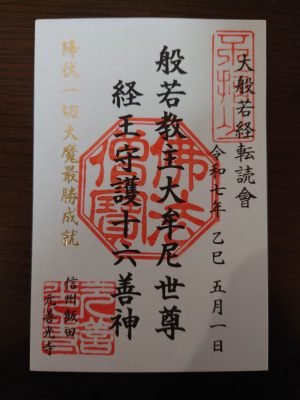 大般若経転読會
令和七年 乙巳 五月一日
般若教主大牟尼世尊
経王守護十六善神
降伏一切大魔最勝成就
信州飯田
元善光寺
佛法僧寶